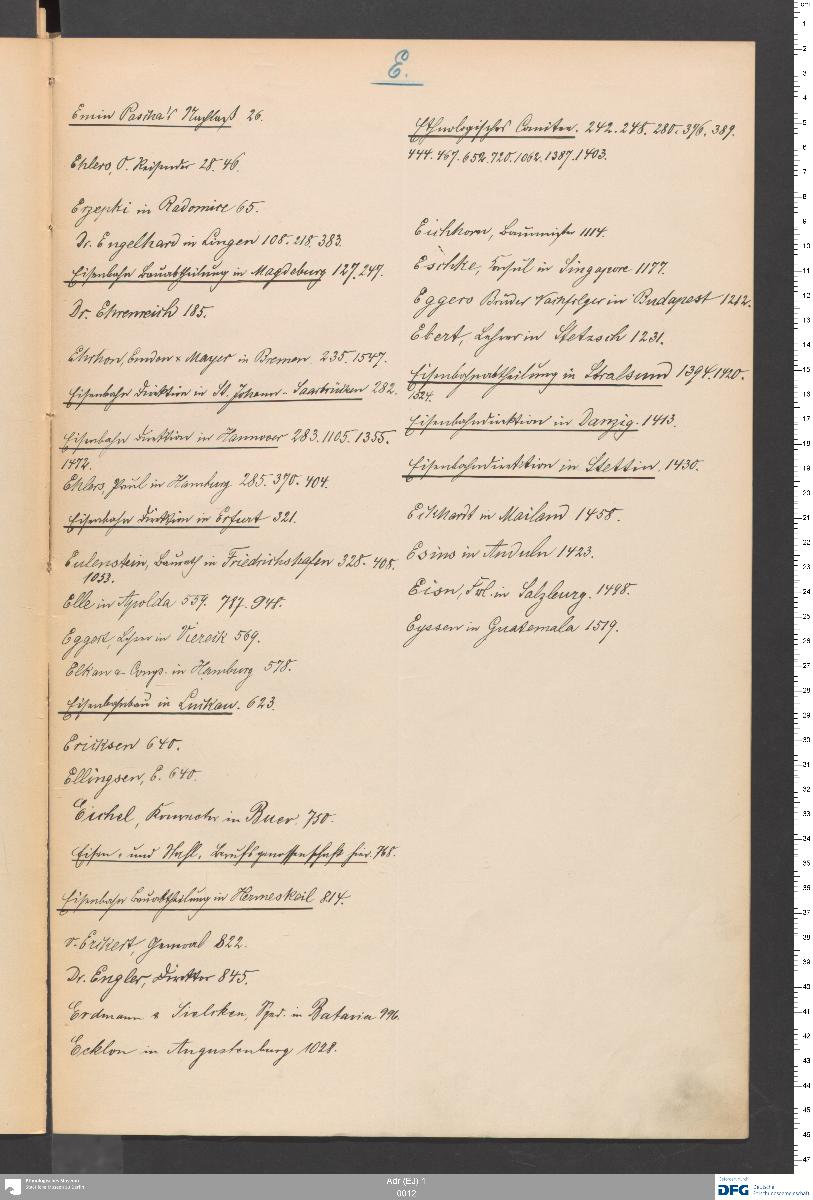 E.
Emin Pascha's Nachlaß 26.
Ehlers, O. Reisender 28. 46.
Erzepki in Radomice 65.
Dr. Engelhard in Lingen 108. 218. 383.
Eisenbahn Bauabtheilung in Magdeburg 127. 247.
Dr. Ehrenreich 185.
in Bremen. 235. 1547.
Eisenbahn Direktion in St. Johann-Saarbrücken 282.
Eisenbahn Direktion in Hannover 283. 1105. 1355.
1472.
Ehlers, Paul in Hamburg 285. 370. 404.
Eisenbahn Direktion in Erfurt 321.
Eulenstein, Baurath in Friedrichshafen 328. 408.
1053.
Elle in Apolda 559. 787. 948.
Eggert, Lehrer in Viereck 569.
Elkan & Comp. in Hamburg 578.
Eisenbahnbau in Luckau. 623.
Ericksen 640.
Ellingsen, E. 640.
Eichel, in Buer. 750.
Eisen- und Stahl-Berufsgenossenschaft hier. 768.
Eisenbahn Bauabtheilung in Hermeskeil 814.
v. Erckert, General 822.
Dr. Engler, Direktor 845.
Erdmann & Sielcken, in Batavia 996.
Ecklon in Augustenburg 1028.
Ethnologisches Comitee. 242. 248. 280. 376. 389.
444. 467. 652. 720. 1062. 1387. 1403.
Eichhorn, Baumeister 1114.
Eschke, Konsul in Singapore 1177.
Eggers Brüder Nachfolger in Budapest 1212.
Ebert, Lehrer in Stetzsch 1231.
Eisenbahnabtheilung in Stralsund 1394. 1420.
1524.
Eisenbahndirektion in Danzig. 1413.
Eisenbahndirektion in Stettin. 1430.
Eckhardt in Mailand 1458.
Esins in 1423.
Eisn, Frl. in Salzburg. 1498.
Eyssen in Guatemala 1519.
Ethnologisches Museum
Staatliche Museen zu Berlin
Adr (EJ) 1
0012
DFG Deutsche
Forschungsgemeinschaft